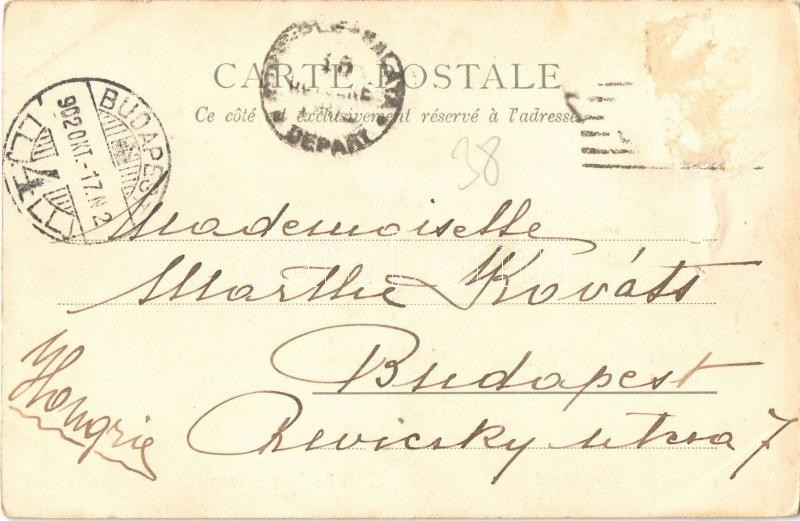 CARTE POSTALE
Ce côté est exclusivement réservé à l'adresse
DEPART
BUDAPEST
902 OKT.-17.N 2
4
38
Mademoiselle
Marthe Kováts
Budapest
Hongrie
Reviczky utcza 7